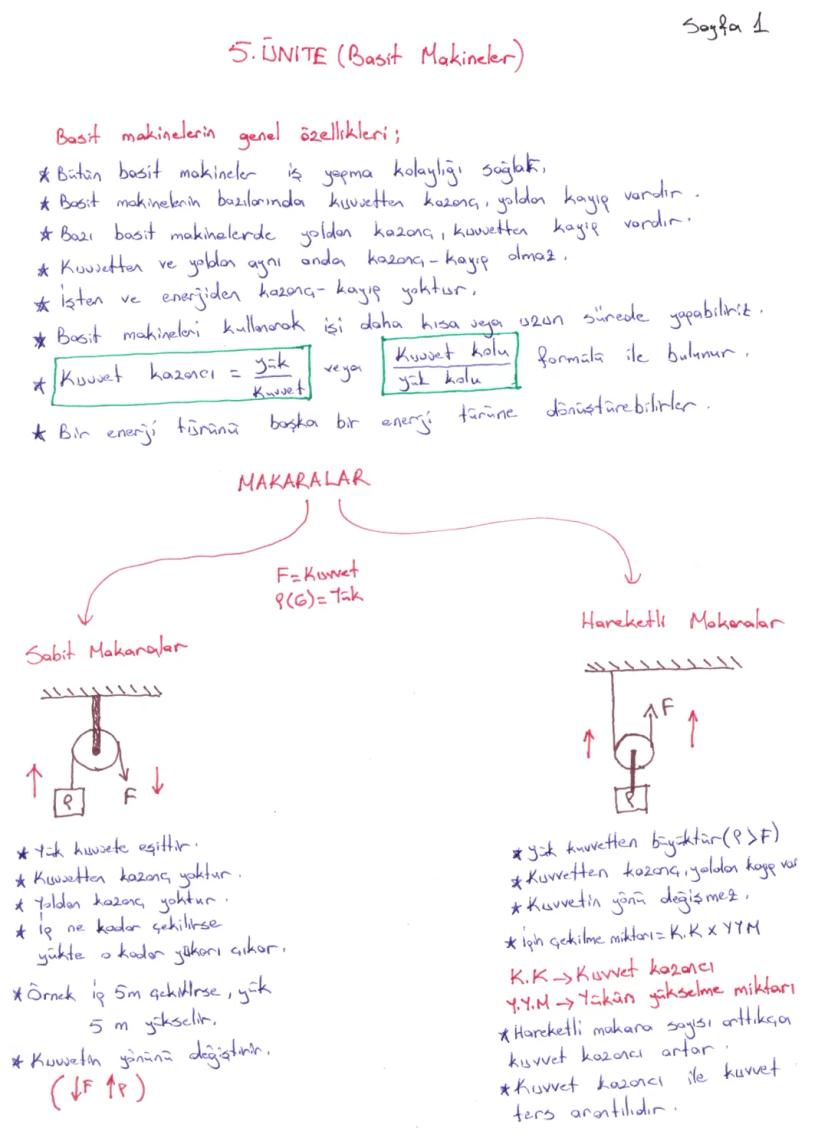 Sayfa 1
5. ÜNİTE (Basit Makineler)
Basit makinelerin genel özellikleri;
* Bütün basit makineler iş yapma kolaylığı sağlar.
* Basit makinelerin bazılarında kuvvetten kazanç, yoldan kayıp vardır.
* Bazı basit makinelerde yoldan kazanç, kuvvetten kayıp vardır.
* Kuvvetten ve yoldan aynı anda kazanç-kayıp olmaz.
* İşten ve enerjiden kazanç-kayıp yoktur.
* Basit makineleri kullanarak işi daha kısa veya uzun sürede yapabiliriz.
* Kuvvet kazancı = yük / Kuvvet veya Kuvvet kolu / yük kolu formülü ile bulunur.
* Bir enerji türünü başka bir enerji türüne dönüştürebilirler.
MAKARALAR
F=Kuvvet
P(G)=Yük
Sabit Makaralar
P F
* Yük kuvvete eşittir.
* Kuvvetten kazanç yoktur.
* Yoldan kazanç yoktur.
* İp ne kadar çekilirse
yükte o kadar yukarı çıkar.
* Örnek ip 5m çekilirse, yük
5 m yükselir.
* Kuvvetin yönünü değiştirir.
(↓F ↑P)
Hareketli Makaralar
F
P
* Yük kuvvetten büyüktür (P>F)
* Kuvvetten kazanç, yoldan kayıp var
* Kuvvetin yönü değişmez.
* İpin çekilme miktarı = K.K x YYM
K.K → Kuvvet kazancı
Y.Y.M → Yükün yükselme miktarı
* Hareketli makara sayısı arttıkça
kuvvet kazancı artar.
* Kuvvet kazancı ile kuvvet
ters orantılıdır.